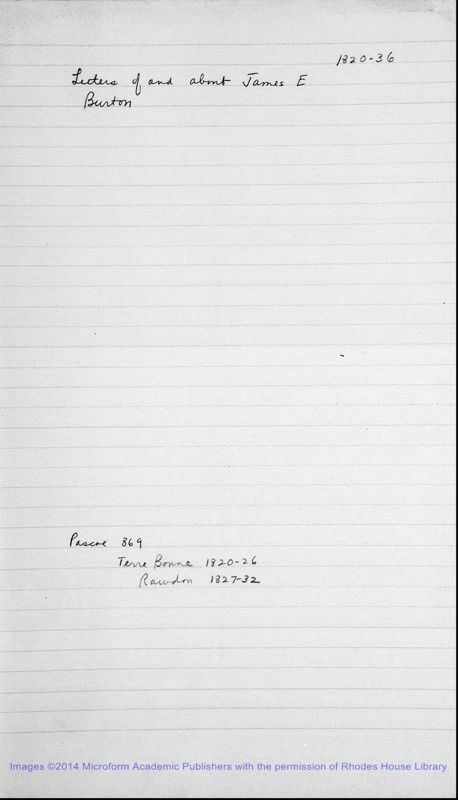 1820-36
Letters of and about James E
Burton
Pascoe 869
Terre Bonne 1820-26
Rawdon 1827-32
Images ©2014 Microform Academic Publishers with the permission of Rhodes House Library